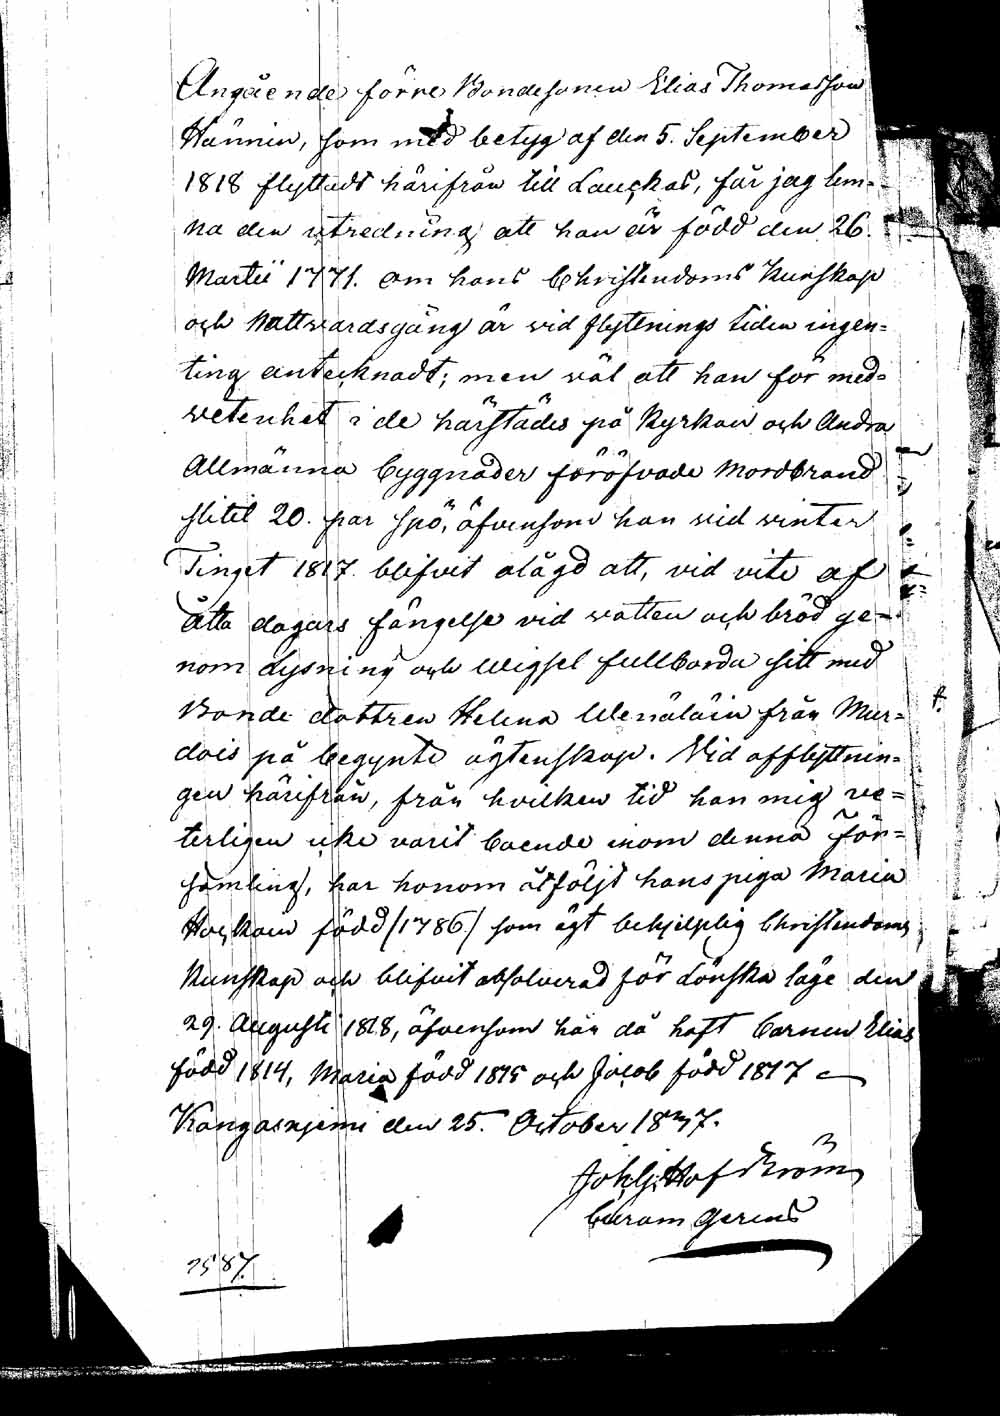 Angående förre Bondesonen Elias Thomasson
Hännin, som med betyg af den 5. September
1818 flyttadt härifrån till Lauckas, får jag lem-
na den utredning att han är född den 26.
Martii 1771. om hans Christendoms Kunskap
och Nattvardsgång är vid flyttnings tiden ingen-
ting antecknadt; men väl att han för med-
vetenhet i de härstädes på Kyrkan och Andra
Allmänna byggnader föröfvade Mordbrand
slitit 20. par spö, äfvensom han vid winter
Tinget 1817 blifvit ålagd att, vid vite af
åtta dagars fängelse vid vatten och bröd ge-
nom Lysning och Wigsel fullborda sitt med
Bonde dottren Helena Wenäläin från Mur-
dois på begynte ägtenskap. Vid afflyttnin-
gen härifrån, från hvilken tid han mig ve-
terligen icke varit boende inom denna För-
samling, har honom åtföljt hans piga Maria
Hockain född /1786./ som ägt behjelplig Christendoms
Kunskap och blifvit absolverad för Lönska läge den
29. Augusti 1818, äfvensom hän då haft barnen Elias
född 1814, Maria född 1815 och Jacob född 1817
Kangasnjemi den 25. October 1837.
Joh. G. Hofström
Curam gerens
2587.